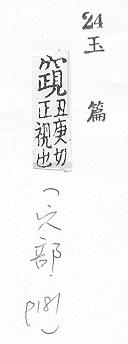 24 玉篇
竀
丑庚切
正視也
(穴部 p181)